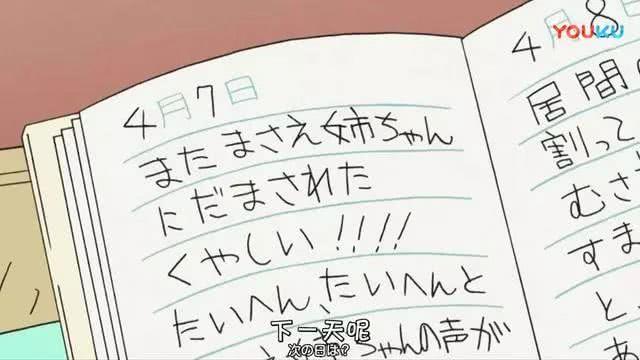 YOUKU
4月7日
またまさえ姉ちゃん
にだまされた
くやしい!!!!
たいへん、たいへんと
ちゃんの声が
4月8
居間
割って
むさ
すま
と
下一天呢
次の日は?